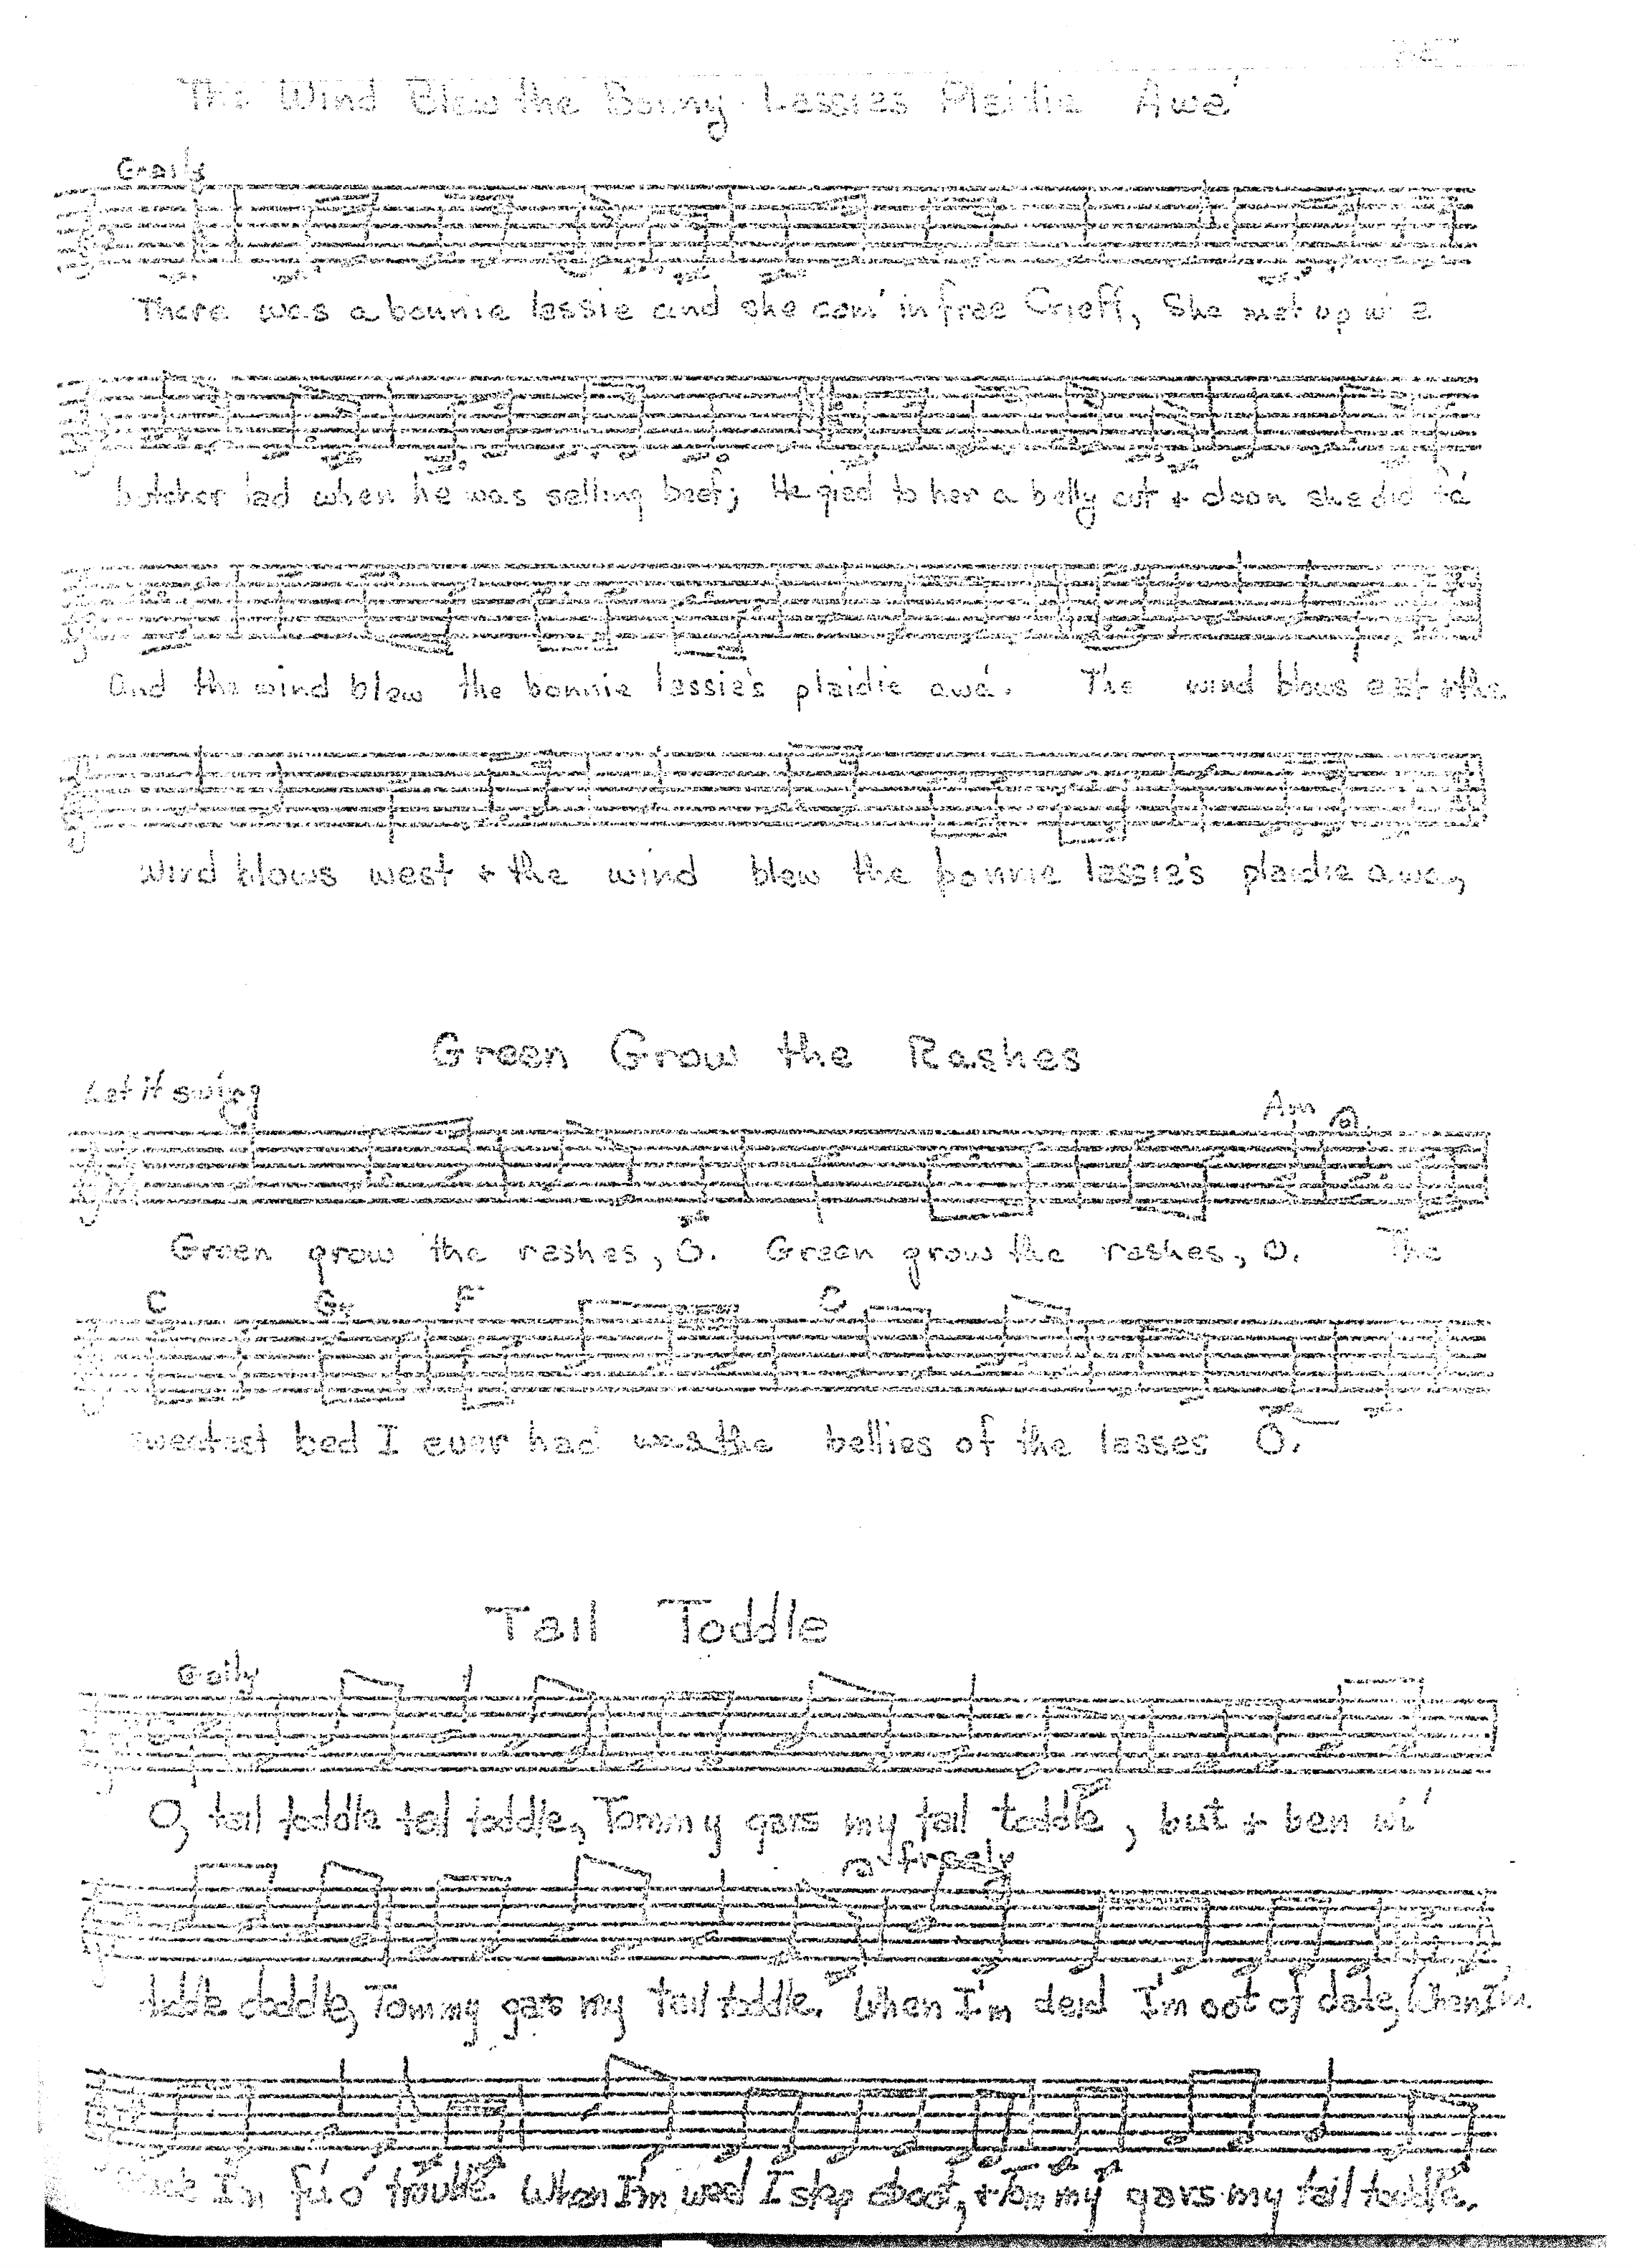 The Wind Blew the Bonny Lassies Plaidie Awa'
Gaily
There was a bonnie lassie and she cam' in frae Crieff, She met up wi' a
butcher lad when he was selling beef; He gied to her a belly cut + doon she did fa'
And the wind blew the bonnie lassie's plaidie awa'. The wind blows east + the
wind blows west + the wind blew the bonnie lassie's plaidie awa,
Green Grow the Rashes
Let it swing
Am
Green grow the rashes, O. Green grow the rashes, O. The
C F G
sweetest bed I ever had was the bellies of the lasses O.
Tail Toddle
Gaily
O, tail toddle tail toddle, Tommy gars my tail toddle, but + ben wi'
freely
diddle doddle, Tommy gars my tail toddle. When I'm deid I'm oot of date, When I'm
I'm fu' o' trouble. When I'm weel I step aboot, + Tommy gars my tail toddle.